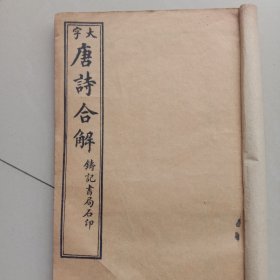 大字
唐詩合解
鑄記書局石印